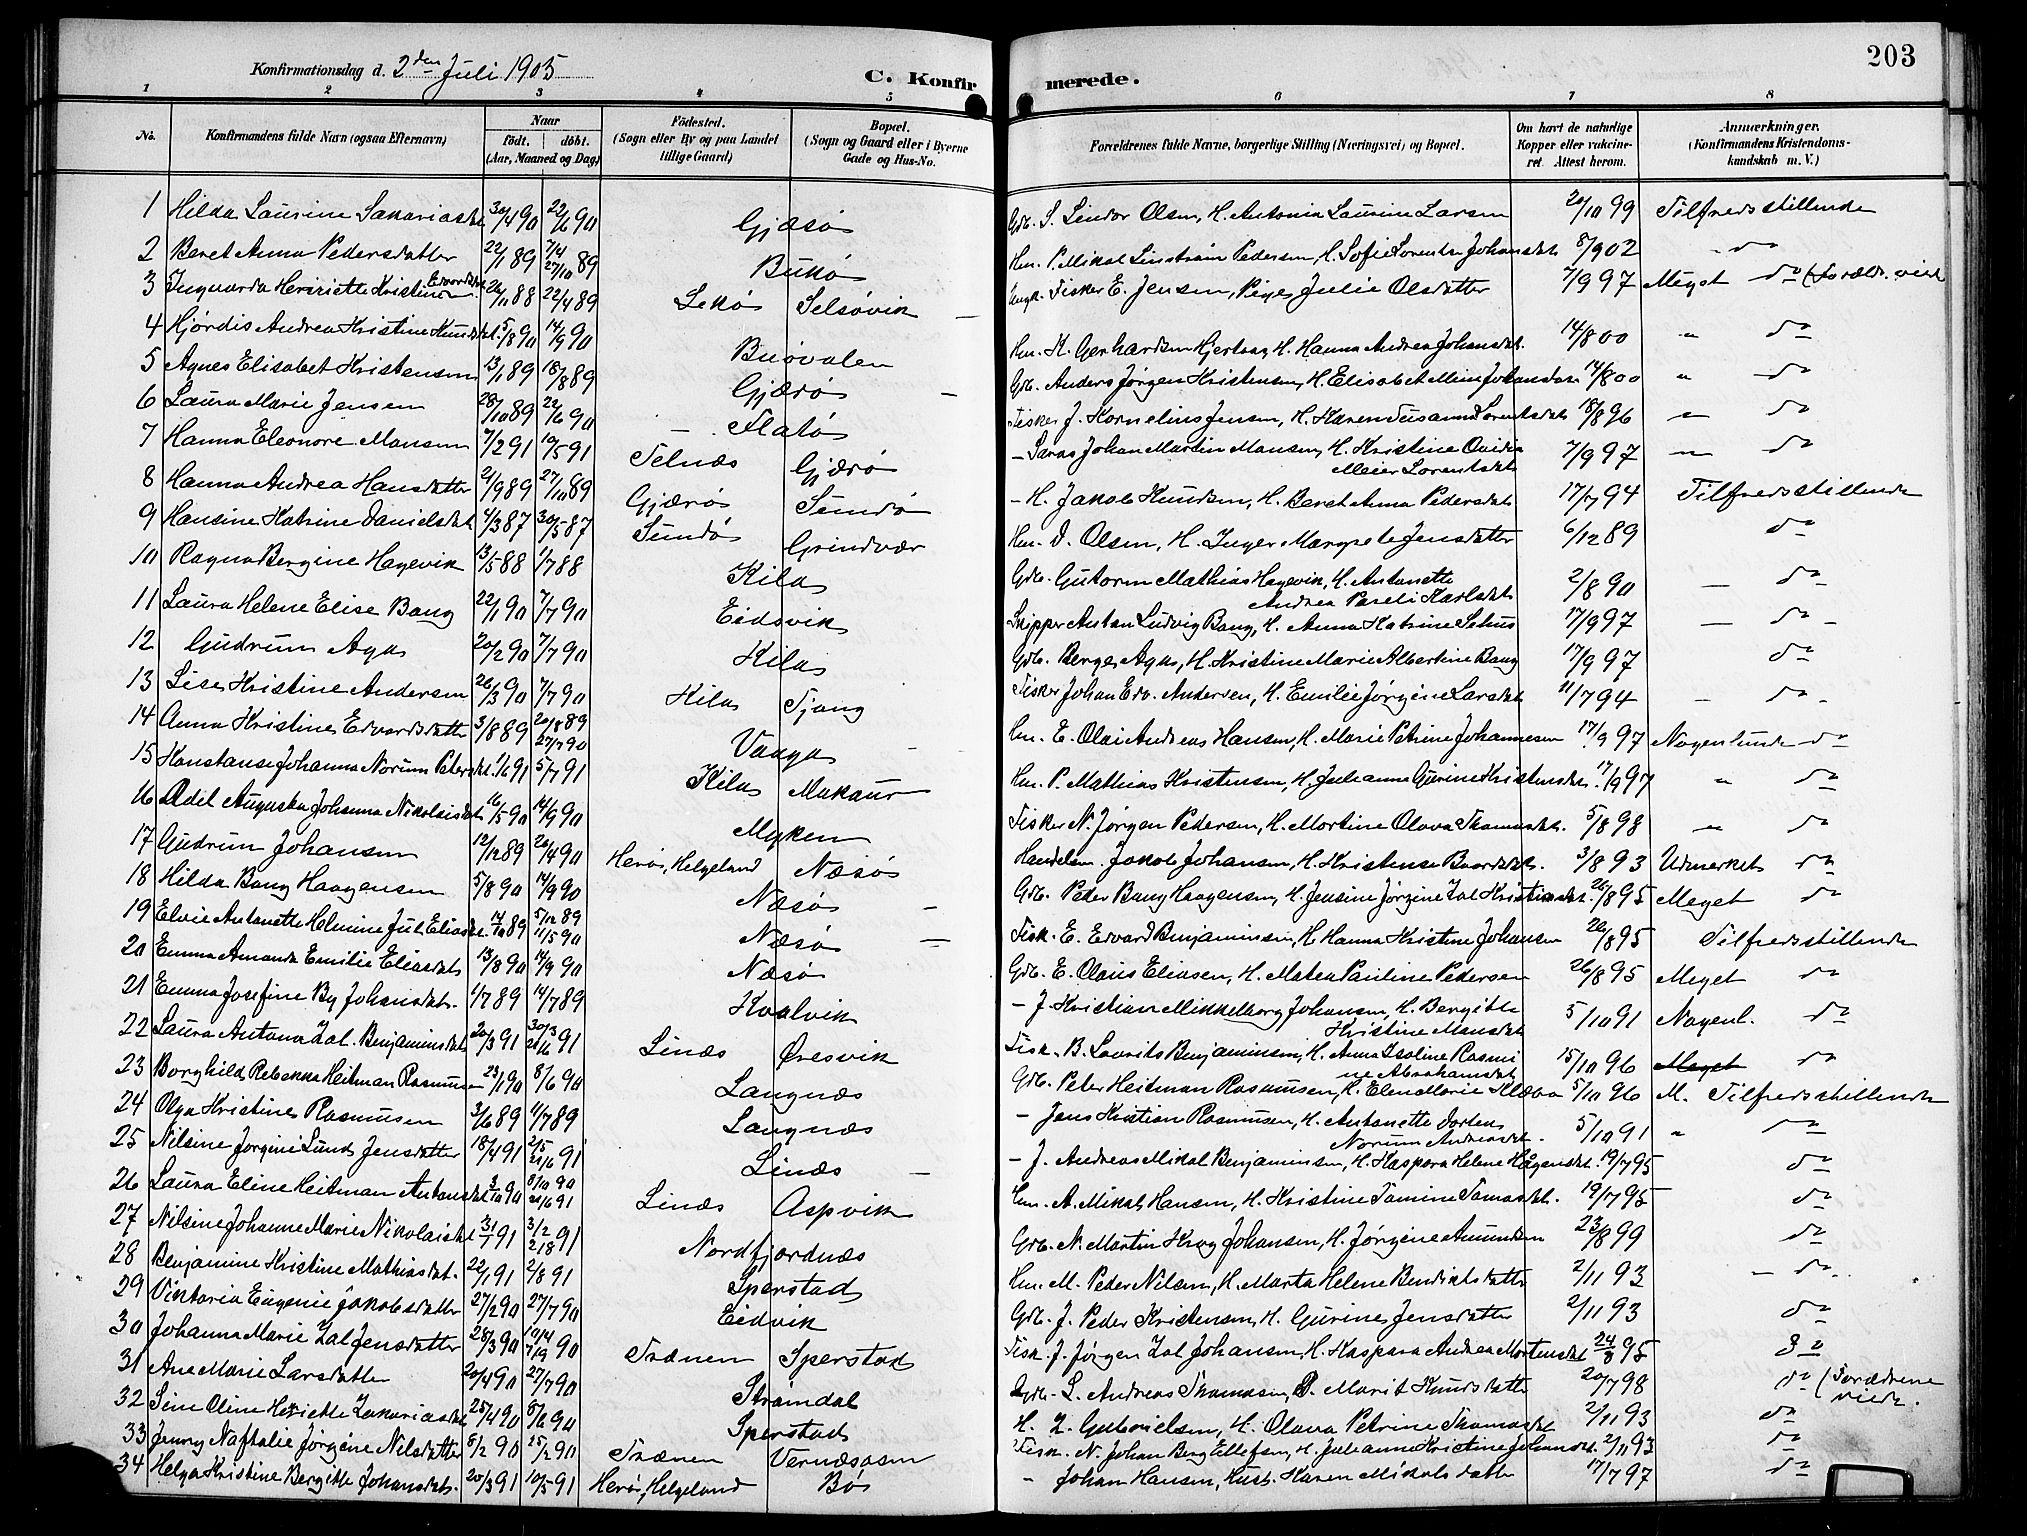 Konfirmationsdag d. 2den Juli 1905
C. Konfirmerede.
203
1 2 3 4 5 6 7 8
No.
Konfirmandens fulde Navn (ogsaa Efternavn)
Naar
födt. döbt.
(Aar, Maaned og Dag)
Födested.
(Sogn eller By og paa Landet
tillige Gaard)
Bopæl.
(Sogn og Gaard eller i Byerne
Gade og Hus-No.
Forældrenes fulde Navne, borgerlige Stilling (Næringsvei) og Bopæl.
Om havt de naturlige
Kopper eller vakcine-
ret. Attest herom.
Anmærkninger.
(Konfirmandens Kristendoms-
kundskab m. V.)
1 Hilda Laurine Sakariasdt 30/4 90 22/6 90 Gjæsø Gdb. S. Lindor Olsen, H. Antonia Laurine Larsen 20/10 99 Tilfredsstillende
2 Beret Anna Pedersdatter 22/1 89 7/4 27/10 89 Bukø Hm. P. Mikal Linstrøm Pedersen, H. Sofie Lorentse Johansdt 8/9 02 - do
3 Ingvarda Henriette Kristine Edvardsdt. 26/11 88 22/4 89 Lekø Selsøvik Ungk. Fisker E. Jensen, Pige Julie Olsdatter 7/9 97 Meget do (Forældr. viet
4 Hjørdis Andrea Kristine Knudsdt. 5/8 90 14/9 90 Buøvalen Hm. K. Gerhardsen Hjertaas, H. Hanna Andrea Johansdt. 14/8 00 " do
5 Agnes Elisabet Kristensen 13/1 89 18/8 89 Gjærø Gdb. Anders Jørgen Kristensen, H. Elisabet Meier Johansdatter 14/8 00 " do
6 Laura Marie Jensen 28/10 89 22/6 90 Flatø Fisker J. Kornelius Jensen, H. Karen Susanna Lorentsdt 18/8 96 " do
7 Hanna Eleonore Monsen 7/2 91 10/5 91 Selnæs Gjærø - Saras Johan Martin Monsen, H. Kristine Ovidia Meier Lorentsdt 7/9 97 " do
8 Hanna Andrea Hansdatter 21/9 89 27/10 89 Gjærø Sundø - H. Jakob Knudsen, H. Beret Anna Pedersdt 17/7 94 Tilfredsstillende
9 Hansine Katrine Danielsdt 4/3 87 30/5 87 Sundø Grindvær Hm. D. Olsen, H. Inger Margrete Jensdatter 6/12 89 do
10 Ragna Bergine Hagevik 13/5 88 1/7 88 Kila Gdb. Gutorm Mathias Hagevik, H. Antonette Andrea Pareli Karlsdt 2/8 90 - do -
11 Laura Helene Elise Bang 22/1 90 7/7 90 Eidsvik Skipper Anton Ludvig Bang, H. Anna Katrine Sehus 17/9 97 - do -
12 Gudrun Aga 20/2 90 7/7 90 Kila Gdb. Berge Aga, H. Kristine Marie Albertine Bang 17/9 97 do
13 Lise Kristine Andersen 26/3 90 7/7 90 Kila Tjong Fisker Johan Edv. Andersen, H. Emilie Jørgine Larsdt 11/7 94 - do -
14 Anna Kristine Edvardsdatter 3/8 89 20/8 89 27/7 90 Vaaga Hm. E. Olai Andreas Hansen, H. Marie Petrine Johannesen 17/9 97 Nogenlunde do
15 Konstanse Johanna Norum Petersdt. 1/6 91 5/7 91 Kila Makaur Hm. P. Mathias Kristensen, H. Julianna Gurine Kristensdt. 17/9 97 " do
16 Adel Augusta Johanna Nikolaisdt 16/5 90 14/9 90 Myken Fisker N. Jørgen Pedersen, H. Mortine Olava Thomasdt. 5/8 98 " do
17 Gudrun Johansen 12/12 89 20/4 90 Herø, Helgeland Næsø Handelsm. Jakob Johansen, H. Kristense Baardsdt. 3/8 93 Udmerket do
18 Hilda Bang Haagensen 5/8 90 14/9 90 Næsø Gdb. Peder Bang Haagensen, H. Jensine Jørgine Zal Kristiansdt. 26/8 95 Meget do
19 Elvie Antonette Helmine Jul. Eliasdt. 17/10 89 5/12 89 11/5 90 Næsø Fisk. E. Edvard Benjaminsen, H. Hanna Kristine Johansen 26/8 95 Tilfredsstillende
20 Emma Amanda Emilie Eliasdt 13/8 90 14/9 90 Næsø Gdb. E. Olaus Eliasen, H. Matea Pauline Pedersen 26/8 95 Meget do
21 Emma Josefine By Johansdt. 1/7 89 14/7 89 Kvalvik - J. Kristian Mikkelborg Johansen, H. Bergitte Kristine Monsdt 5/10 91 Nogenl. do
22 Laura Antona Zal. Benjaminsdt 20/3 91 30/3 21/6 91 Linæs Øresvik Fisk. B. Laurits Benjaminsen, H. Anna Isaline Rasmine Abrahamsdt 15/10 96 Meget do
23 Borghild Rebekka Heitman Rasmusen 23/1 90 8/6 90 Langnæs Gdb. Peter Heitman Rasmusen, H. Elen Marie Klæbo 5/10 96 M. Tilfredsstillende
24 Olga Kristine Rasmusen 3/6 89 1/7 89 Langnæs - Jens Kristian Rasmusen, H. Antonette Dortea Norum Andreasdt. 5/10 91 " do
25 Nilsine Jørgine Lund Jensdatter 18/4 91 2/5 21/6 91 Linæs - J. Andreas Mikal Benjaminsen, H. Kaspara Helene Hågensdt. 19/7 95 do
26 Laura Eline Heitman Antonsdt 3/10 90 8/10 90 21/6 91 Linæs Aspvik Hm. A. Mikal Hansen, H. Kristine Tomine Tomasdt. 19/7 95 do
27 Nilsine Johanne Marie Nikolaisdt 31/1 91 3/2 2/8 91 Nordfjordnæs Gdb. N. Martin Krog Johansen, H. Jørgine Amundsen 23/8 99 do
28 Benjamine Kristine Mathiasdt. 22/1 91 2/8 91 Sperstad Hm. M. Peder Nilsen, H. Marta Helene Bendiktsdatter 2/11 93 - do -
29 Viktoria Eugenie Jakobsdatter 27/2 90 27/7 90 Eidvik Gdb. J. Peder Kristensen, H. Gurine Jensdatter 2/11 93 do
30 Johanna Marie Zal Jensdatter 28/3 90 10/4 7/9 90 Trænen Sperstad Fisk. J. Jørgen Zal Johansen, H. Kaspara Andrea Mortensdt 24/8 95 do
31 Ane Marie Larsdatter 20/4 90 27/7 90 Strømdal Gdb. L. Andreas Thomasen, P. Marit Knudsdatter 20/7 98 do (Forældrene viede.
32 Sine Oline Henriette Zakariasdt 25/4 90 8/6 90 Sperstad H. Z. Gabrielsen, H. Olava Petrine Thomasdt 2/11 93 do
33 Jenny Naftalie Jørgine Nilsdatter 8/2 90 25/2 90 Trænen Vernæsosen Fisk. N. Johan Berg Ellefsen, H. Julianna Kristine Johansdt. 2/11 93 do
34 Helga Kristine Bergitte Johansdt. 20/3 91 10/5 91 Herø, Helgeland Bø - Johan Hansen, Hust. Karen Mikalsdatter 17/7 97 do